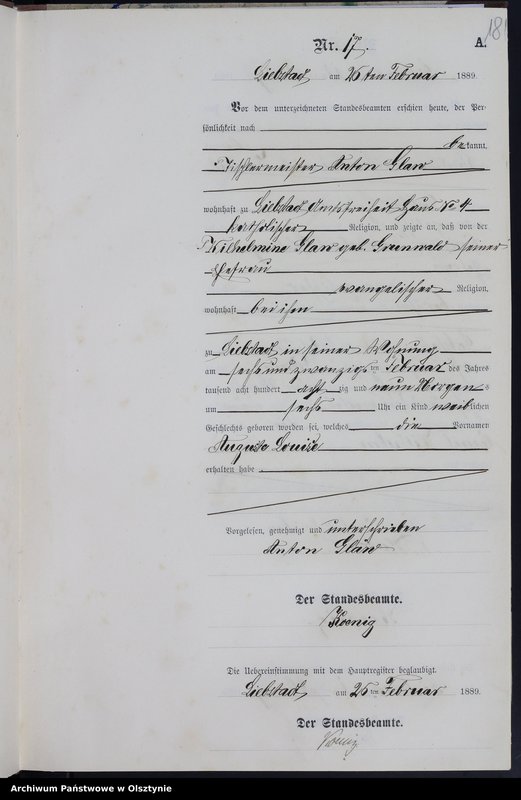 181
Nr. 17.
A.
Liebstadt am 26ten Februar 1889.
Vor dem unterzeichneten Standesbeamten erschien heute, der Per-
sönlichkeit nach
bekannt,
Tischlermeister Anton Glaw
wohnhaft zu Liebstadt Amtsfreiheit Haus No 4
katholischer Religion, und zeigte an, daß von der
Wilhelmine Glaw geb. Grunwald seiner
Ehefrau
evangelischer Religion,
wohnhaft bei ihm
zu Liebstadt in seiner Wohnung
am sechs und zwanzigsten Februar des Jahres
tausend acht hundert acht zig und neun Morgens
um sechs Uhr ein Kind weiblichen
Geschlechts geboren worden sei, welches die Vornamen
Auguste Louise
erhalten habe.
Vorgelesen, genehmigt und unterschrieben
Anton Glaw
Der Standesbeamte.
Koenig
Die Uebereinstimmung mit dem Hauptregister beglaubigt.
Liebstadt am 26ten Februar 1889.
Der Standesbeamte.
Koenig
Archiwum Państwowe w Olsztynie